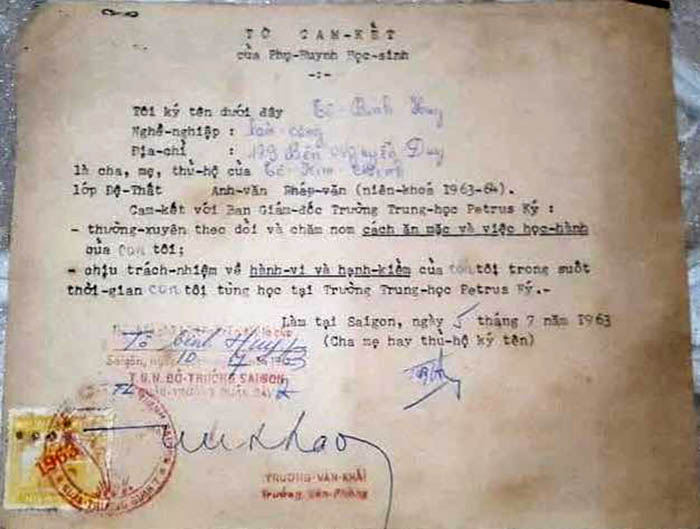 TỜ CAM-KẾT
của Phụ-Huynh Học-sinh
-:-
Tôi ký tên dưới đây Tô-Bình Huy
Nghề-nghiệp : làm công
Địa-chỉ : 179 Bến Nguyễn Duy
là cha, mẹ, thủ-hộ của Tô-Kim
lớp Đệ-Thất Anh-văn Pháp-văn (niên-khoá 1963-64).
Cam-kết với Ban Giám-đốc Trường Trung-học Petrus Ký :
- thường-xuyên theo dỏi và chăm nom cách ăn mặc và việc học-hành
của con tôi;
- chịu trách-nhiệm về hành-vi và hạnh-kiểm của con tôi trong suốt
thời-gian con tôi tùng học tại Trường Trung-học Petrus Ký.-
Làm tại Saigon, ngày 5 tháng 7 năm 1963
(Cha mẹ hay thủ-hộ ký tên)
Tô Bình Huy
Saigon, ngày 10 7 1963
T.U.N. ĐÔ-TRƯỞNG SAIGON
QUẬN-TRƯỞNG QUẬN BẢY
1963
TRƯƠNG-VĂN-KHẢI
Trưởng Văn-Phòng